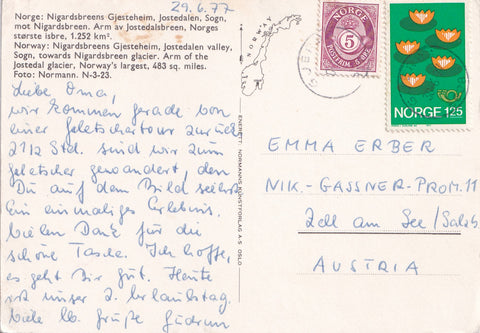 29.6.77
Norge: Nigardsbreens Gjesteheim, Jostedalen, Sogn,
mot Nigardsbreen. Arm av Jostedalsbreen, Norges
største isbre, 1.252 km².
Norway: Nigardsbreens Gjesteheim, Jostedalen valley,
Sogn, towards Nigardsbreen glacier. Arm of the
Jostedal glacier, Norway's largest, 483 sq. miles.
Foto: Normann. N-3-23.
Liebe Oma,
wir kommen gerade von
einer Gletschertour zurück
2 1/2 Std. sind wir zum
Gletscher gewandert, den
Du auf dem Bild siehst.
Ein einmaliges Erlebnis.
Vielen Dank für die
schöne Tasche. Ich hoffe,
es geht Dir gut. Heute
ist unser 2. Urlaubstag.
Viele lb. Grüße Gudrun
NORWAY
ENERETT: NORMANNS KUNSTFORLAG A.S. OSLO
NORGE
5
POSTFRIM. 5 ØRE
NORGE 125
EMMA ERBER
NIK.-GASSNER-PROM. 11
Zell am See/Salzb.
AUSTRIA